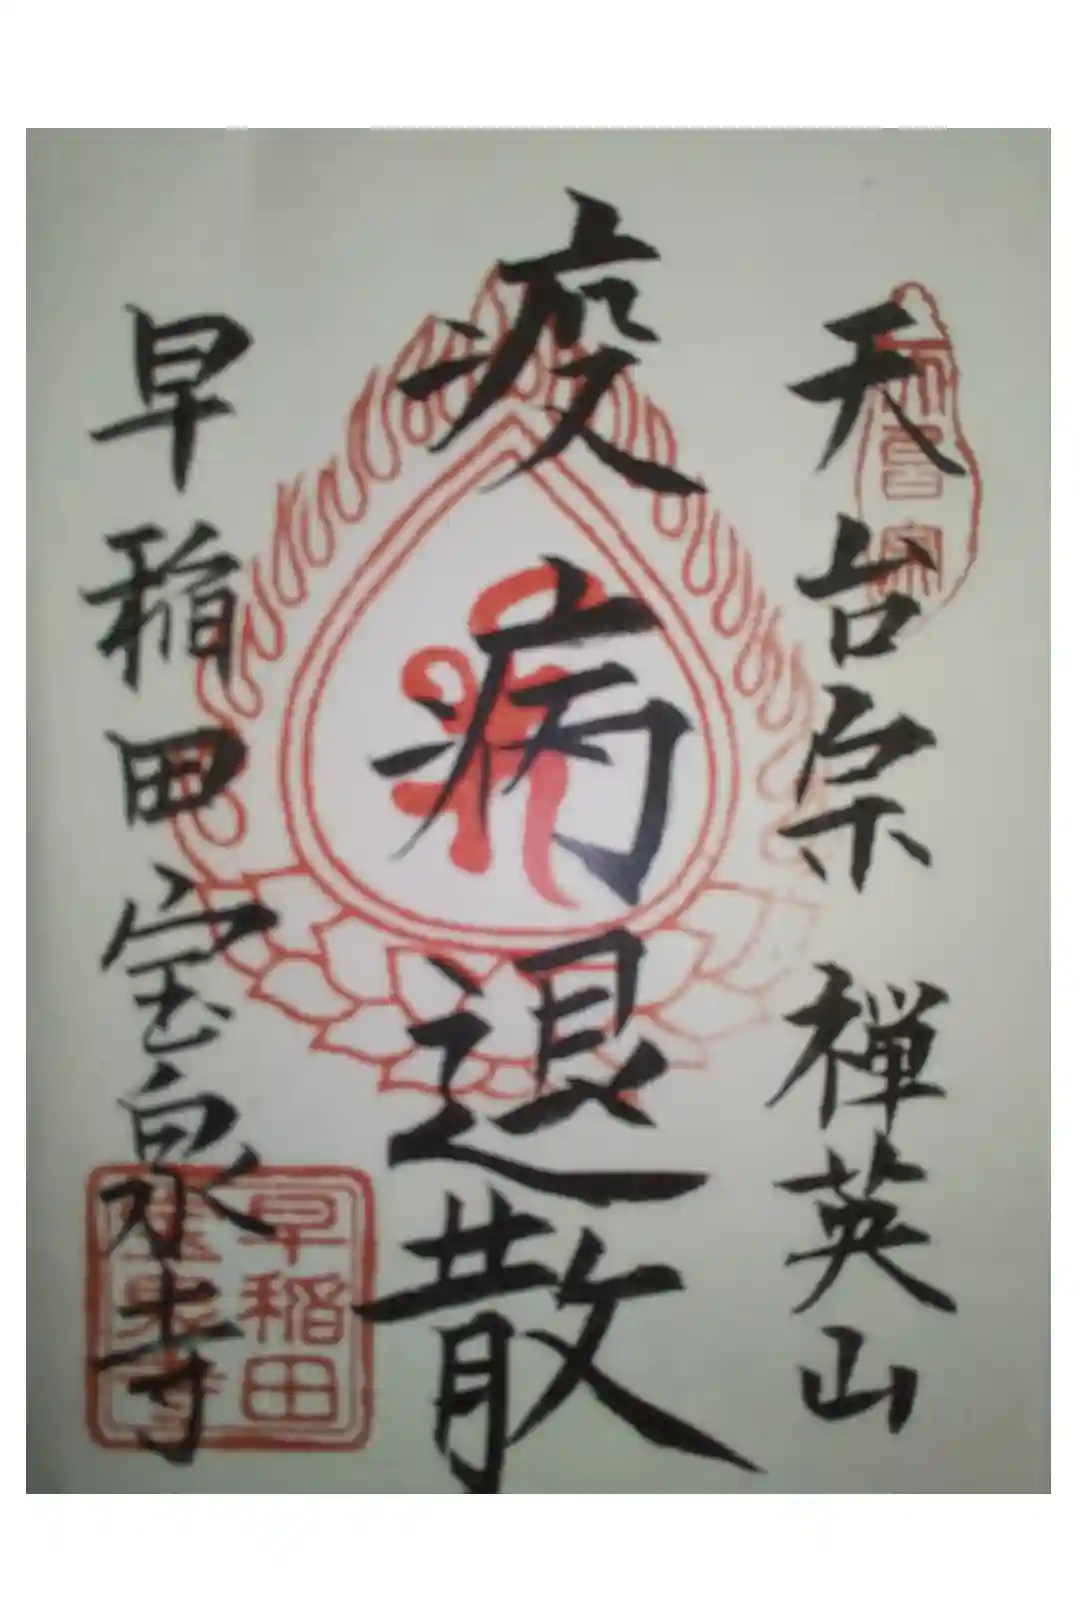 天台宗 禅英山
疫病退散
早稲田宝泉寺
天台宗
早稲田
宝泉寺